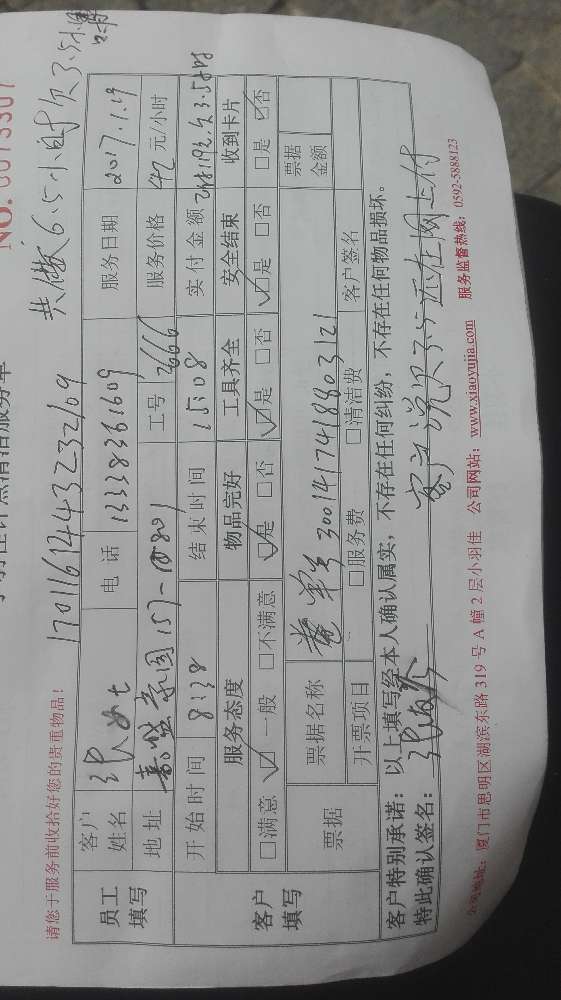 NO. 0013307
小羽佳计点清洁服务单
请您于服务前收拾好您的贵重物品！
17011614443232109 共做6.5小时欠3.5小时
员工填写
客户姓名 张 电话 13338361609 服务日期 2017.1.19
地址 嘉盛家园157- 工号 2666 服务价格 42 元/小时
客户填写
开始时间 8:38 结束时间 15:08 实付金额 欠3.5小时
服务态度 物品完好 工具齐全 安全结束 收到卡片
□满意 ☑一般 □不满意 ☑是 □否 ☑是 □否 ☑是 □否 □是 ☑否
票据 票据名称 单号3001417418803121 票据金额
开票项目 □服务费 □清洁费 客户签名
客户特别承诺：以上填写经本人确认属实，不存在任何纠纷，不存在任何物品损坏。
特此确认签名：张 客户说欠的还在网上付
公司地址：厦门市思明区湖滨东路 319 号 A 幢 2 层小羽佳 公司网站：www.xiaoyujia.com 服务监督热线：0592-5888123